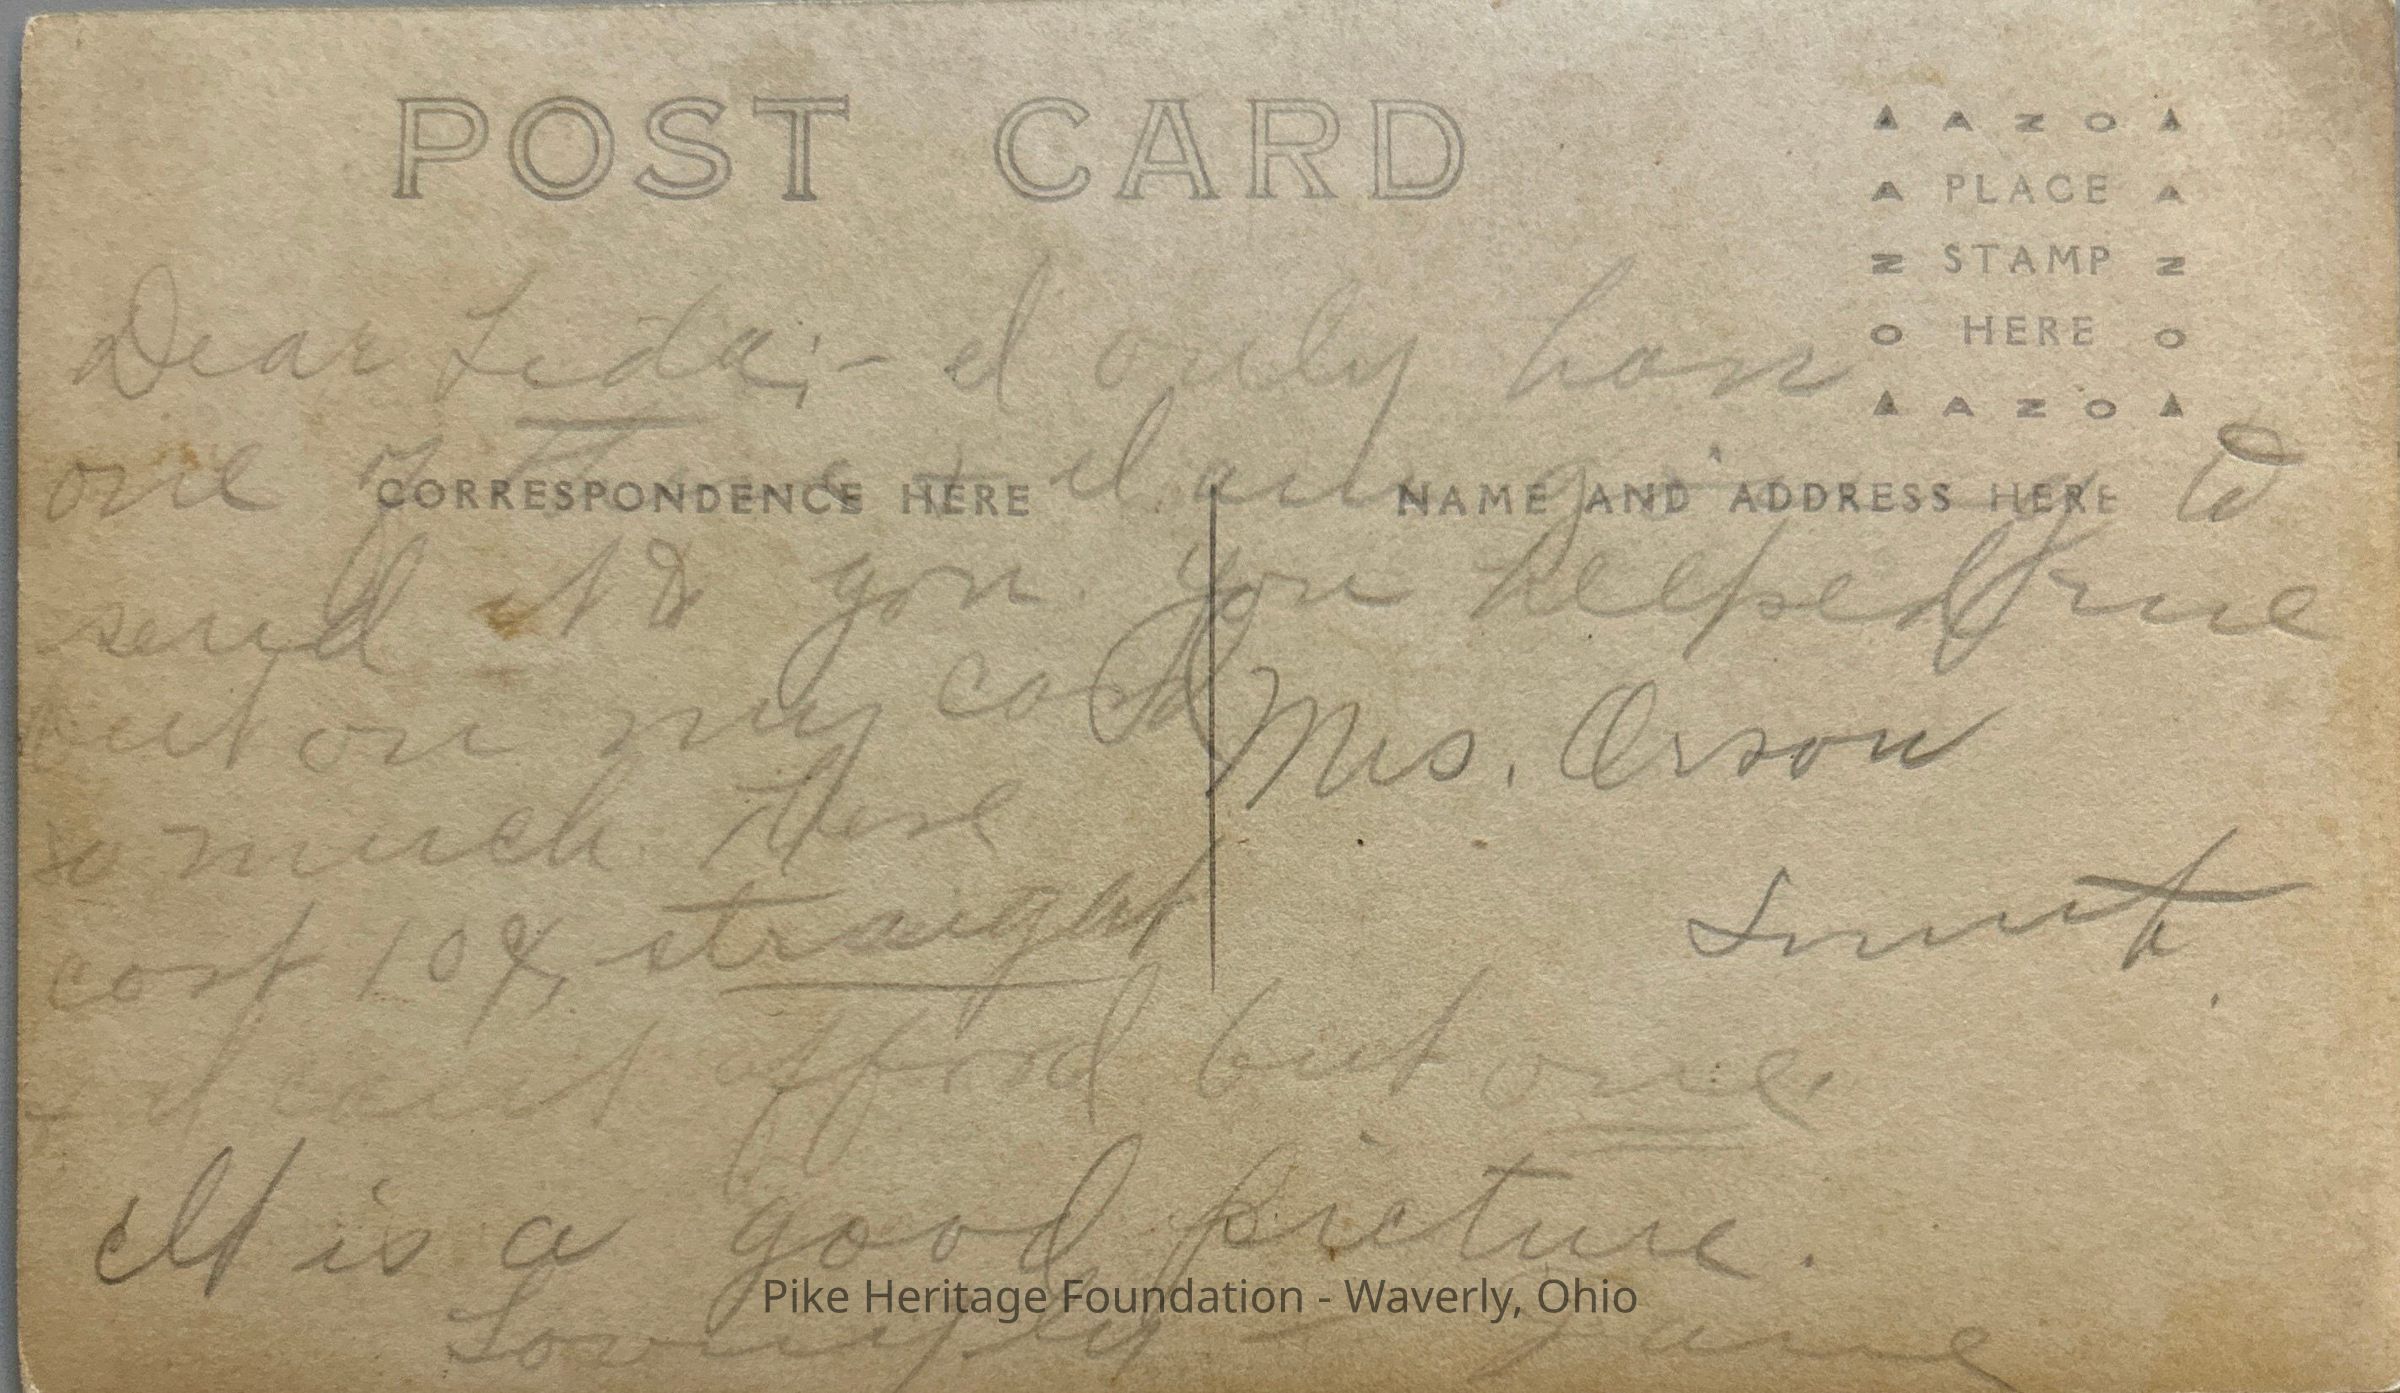 POST CARD
▲ A Z O ▲
A PLACE A
Z STAMP Z
O HERE O
▲ A Z O ▲
Dear Leda;- I only have
one of these & I am going to
CORRESPONDENCE HERE
NAME AND ADDRESS HERE
send it to you. You helped me
out on my
so much. These
cost 10¢, straight
& I can't afford but one.
It is a good picture.
Lovingly - Jane
Mrs. Orson
Pike Heritage Foundation - Waverly, Ohio